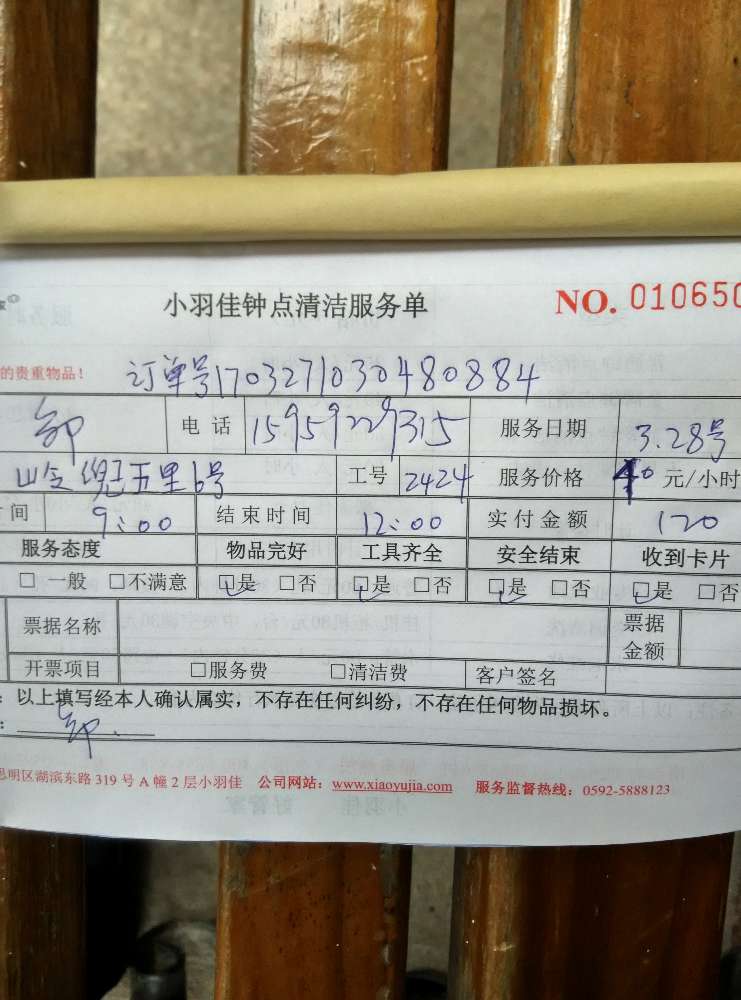 小羽佳钟点清洁服务单 NO. 010650
的贵重物品！ 订单号1703271030480884
邹 电话 15959229315 服务日期 3.28号
五里6号 工号 2424 服务价格 40 元/小时
间 9:00 结束时间 12:00 实付金额 120
服务态度 物品完好 工具齐全 安全结束 收到卡片
□ 一般 □不满意 □是 □否 □是 □否 □是 □否 □是 □否
票据名称 票据
金额
开票项目 □服务费 □清洁费 客户签名
：以上填写经本人确认属实，不存在任何纠纷，不存在任何物品损坏。
：邹
思明区湖滨东路 319 号 A 幢 2 层小羽佳 公司网站：www.xiaoyujia.com 服务监督热线：0592-5888123